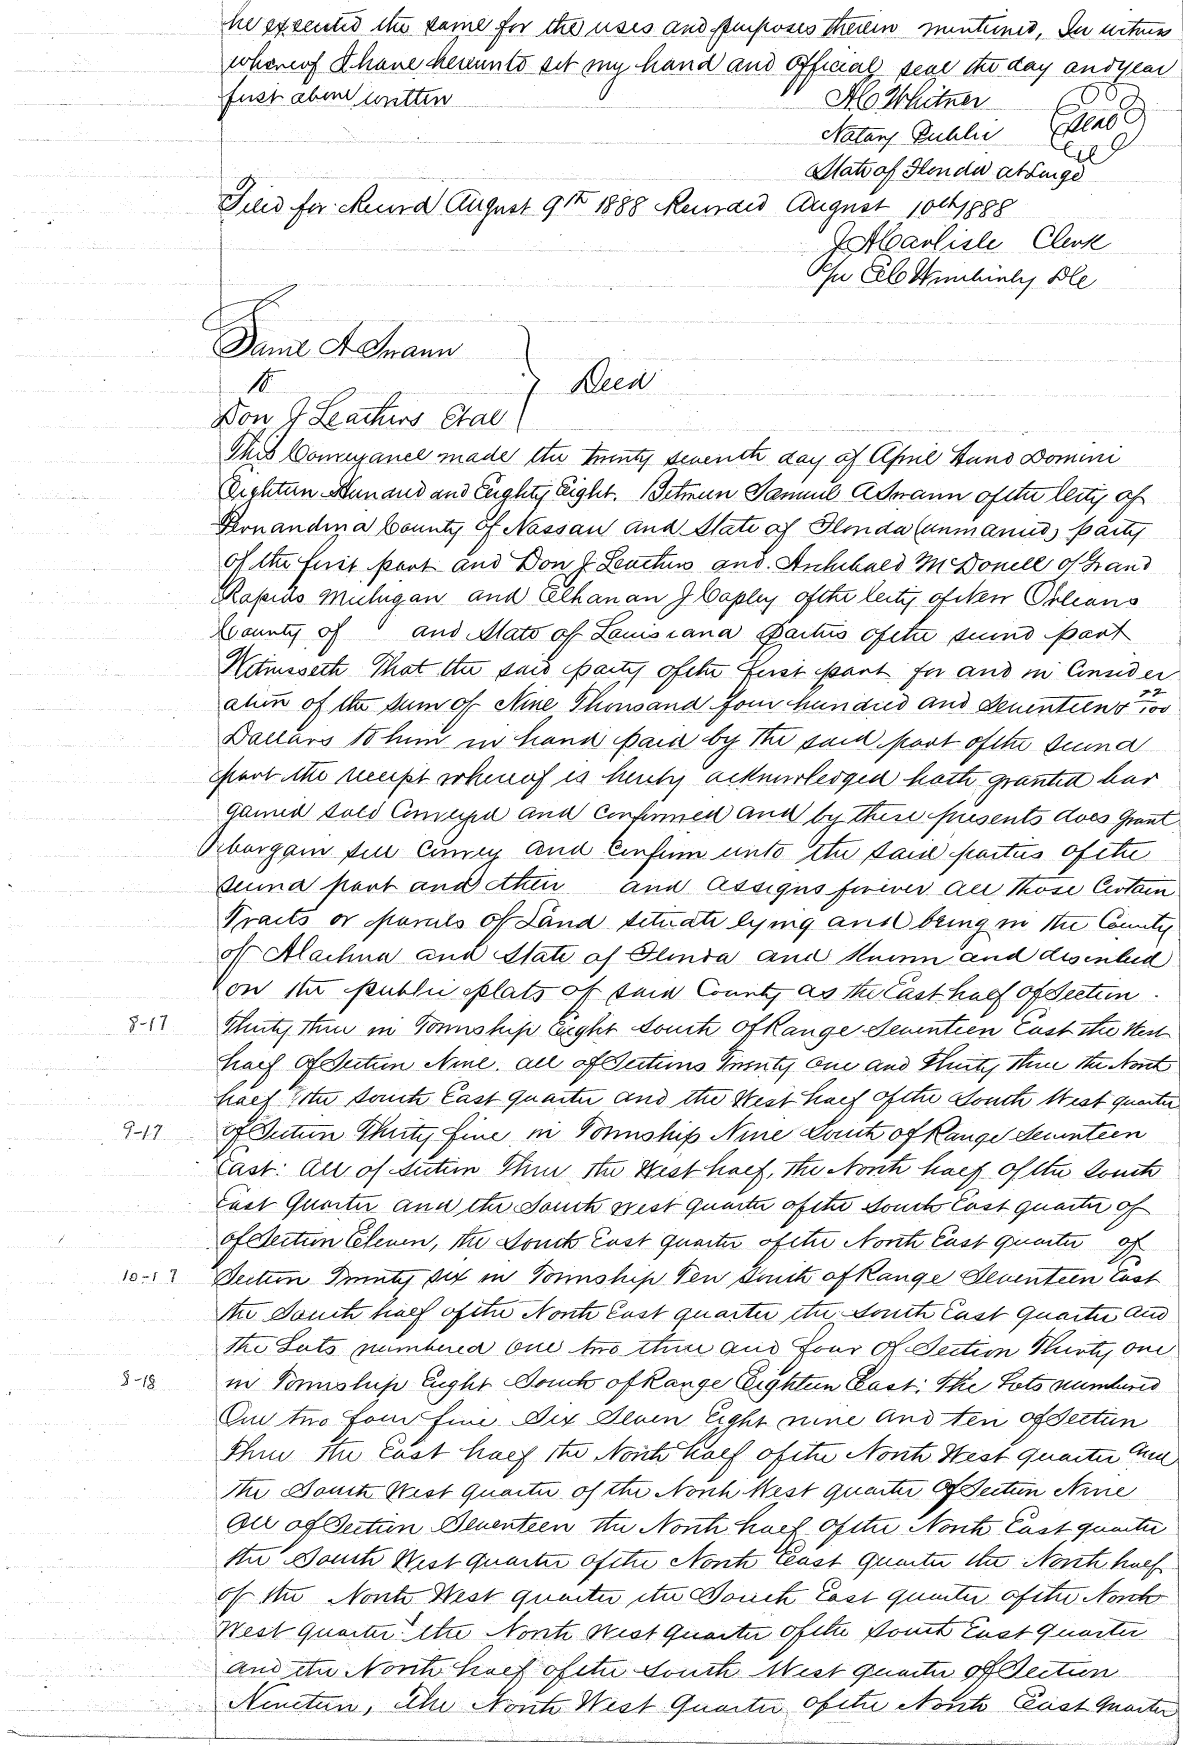 he executed the same for the uses and purposes therein mentioned, In witness
whereof I have hereunto set my hand and official seal the day and year
first above written
Whitner
Notary Public Seal
State of Florida at Large
Filed for Record August 9th 1888 Recorded August 10th 1888
J A Carlisle Clerk
Per DC
Saml A Swann
To
Deed
Don J Leathers Etal
This Conveyance made the twenty seventh day of April Anno Domini
Eighteen Hundred and Eighty Eight. Between Samuel A Swann of the City of
Fernandina County of Nassau and State of Florida (unmarried) party
of the first part and Don J Leathers and Archibald McDonell of Grand
Rapids Michigan and Elhanan J Capley of the City of New Orleans
County of and State of Louisiana parties of the second part
Witnesseth That the said party of the first part for and in Consider
ation of the sum of Nine Thousand four hundred and Seventeen & 22/100
Dollars to him in hand paid by the said part of the second
part the receipt whereof is hereby acknowledged hath granted bar
gained sold Conveyed and confirmed and by these presents does grant
bargain sell Convey and Confirm unto the said parties of the
second part and their and assigns forever all those Certain
Tracts or parcels of Land situate lying and being in the County
of Alachua and State of Florida and known and described
on the public plats of said County as the East half of Section
8-17 Thirty three in Township Eight South of Range Seventeen East the West
half of Section Nine. all of Sections Twenty One and Thirty three the North
half the South East quarter and the West half of the South West quarter
9-17 of Section Thirty five in Township Nine South of Range Seventeen
East: All of Section Three the West half, the North half of the South
East Quarter and the South West quarter of the South East quarter of
of Section Eleven, the South East quarter of the North East quarter of
10-17 Section Twenty six in Township Ten South of Range Seventeen East
the South half of the North East quarter the South East Quarter and
the Lots numbered One two three and four of Section Thirty one
8-18 in Township Eight South of Range Eighteen East: The Lots numbered
One two four five Six Seven Eight nine and ten of Section
Three the East half the North half of the North West quarter and
the South West quarter of the North West quarter of Section Nine
all of Section Seventeen the North half of the North East quarter
the South West quarter of the North East quarter the North half
of the North West quarter the South East quarter of the North
West quarter the North West Quarter of the South East quarter
and the North half of the South West quarter of Section
Nineteen, The North West Quarter of the North East Quarter